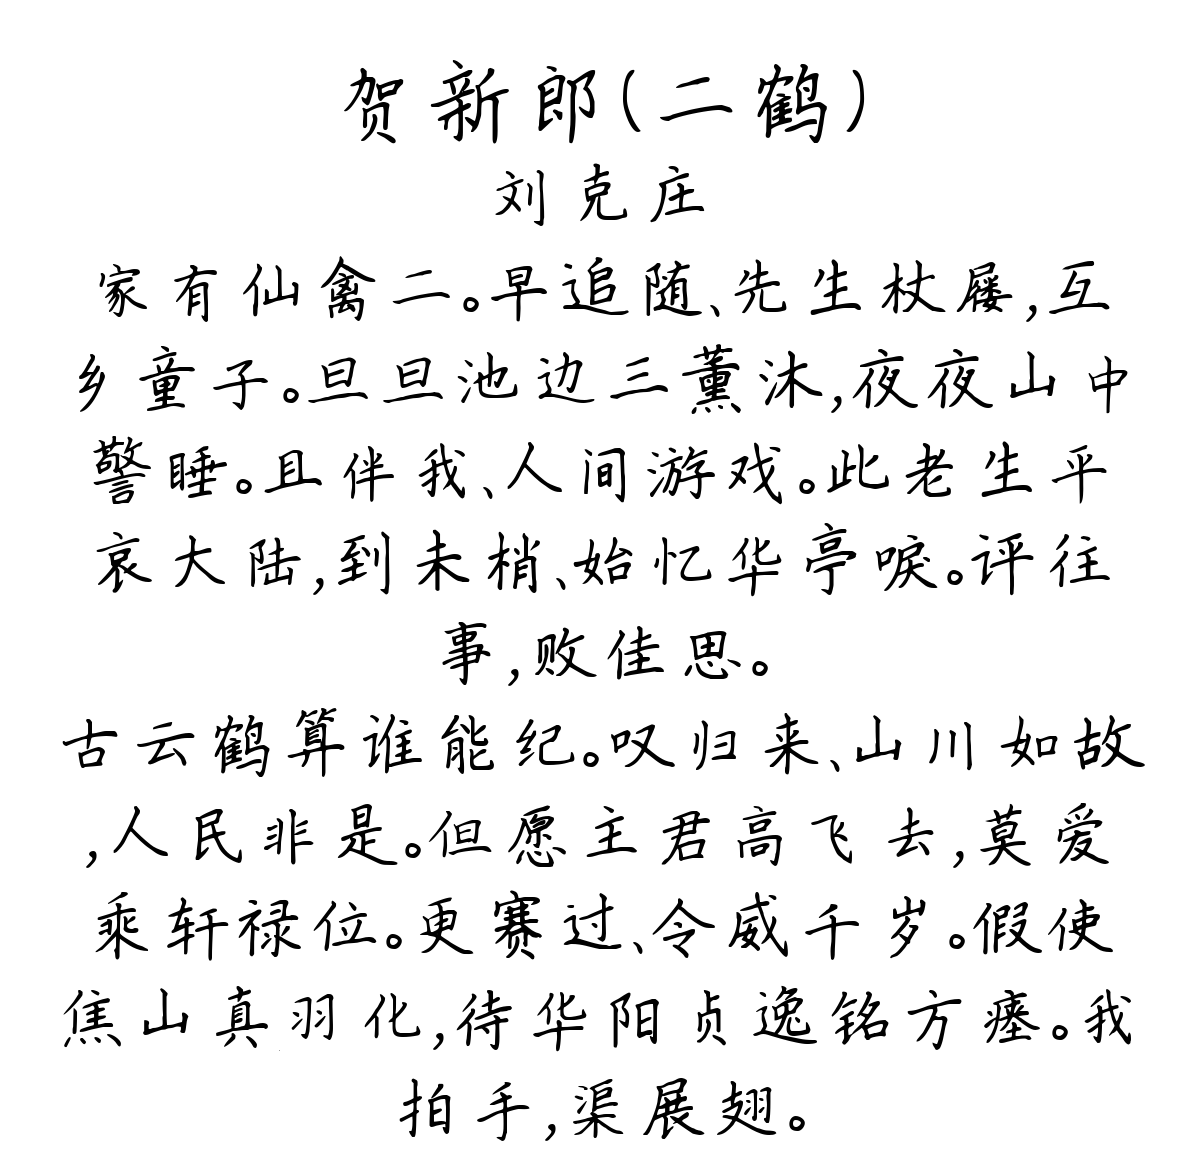 贺新郎(二鹤)
刘克庄
家有仙禽二。早追随、先生杖屦,互
乡童子。旦旦池边三薰沐,夜夜山中
警睡。且伴我、人间游戏。此老生平
哀大陆,到末梢、始忆华亭唳。评往
事,败佳思。
古云鹤算谁能纪。叹归来、山川如故
,人民非是。但愿主君高飞去,莫爱
乘轩禄位。更赛过、令威千岁。假使
焦山真羽化,待华阳贞逸铭方瘗。我
拍手,渠展翅。